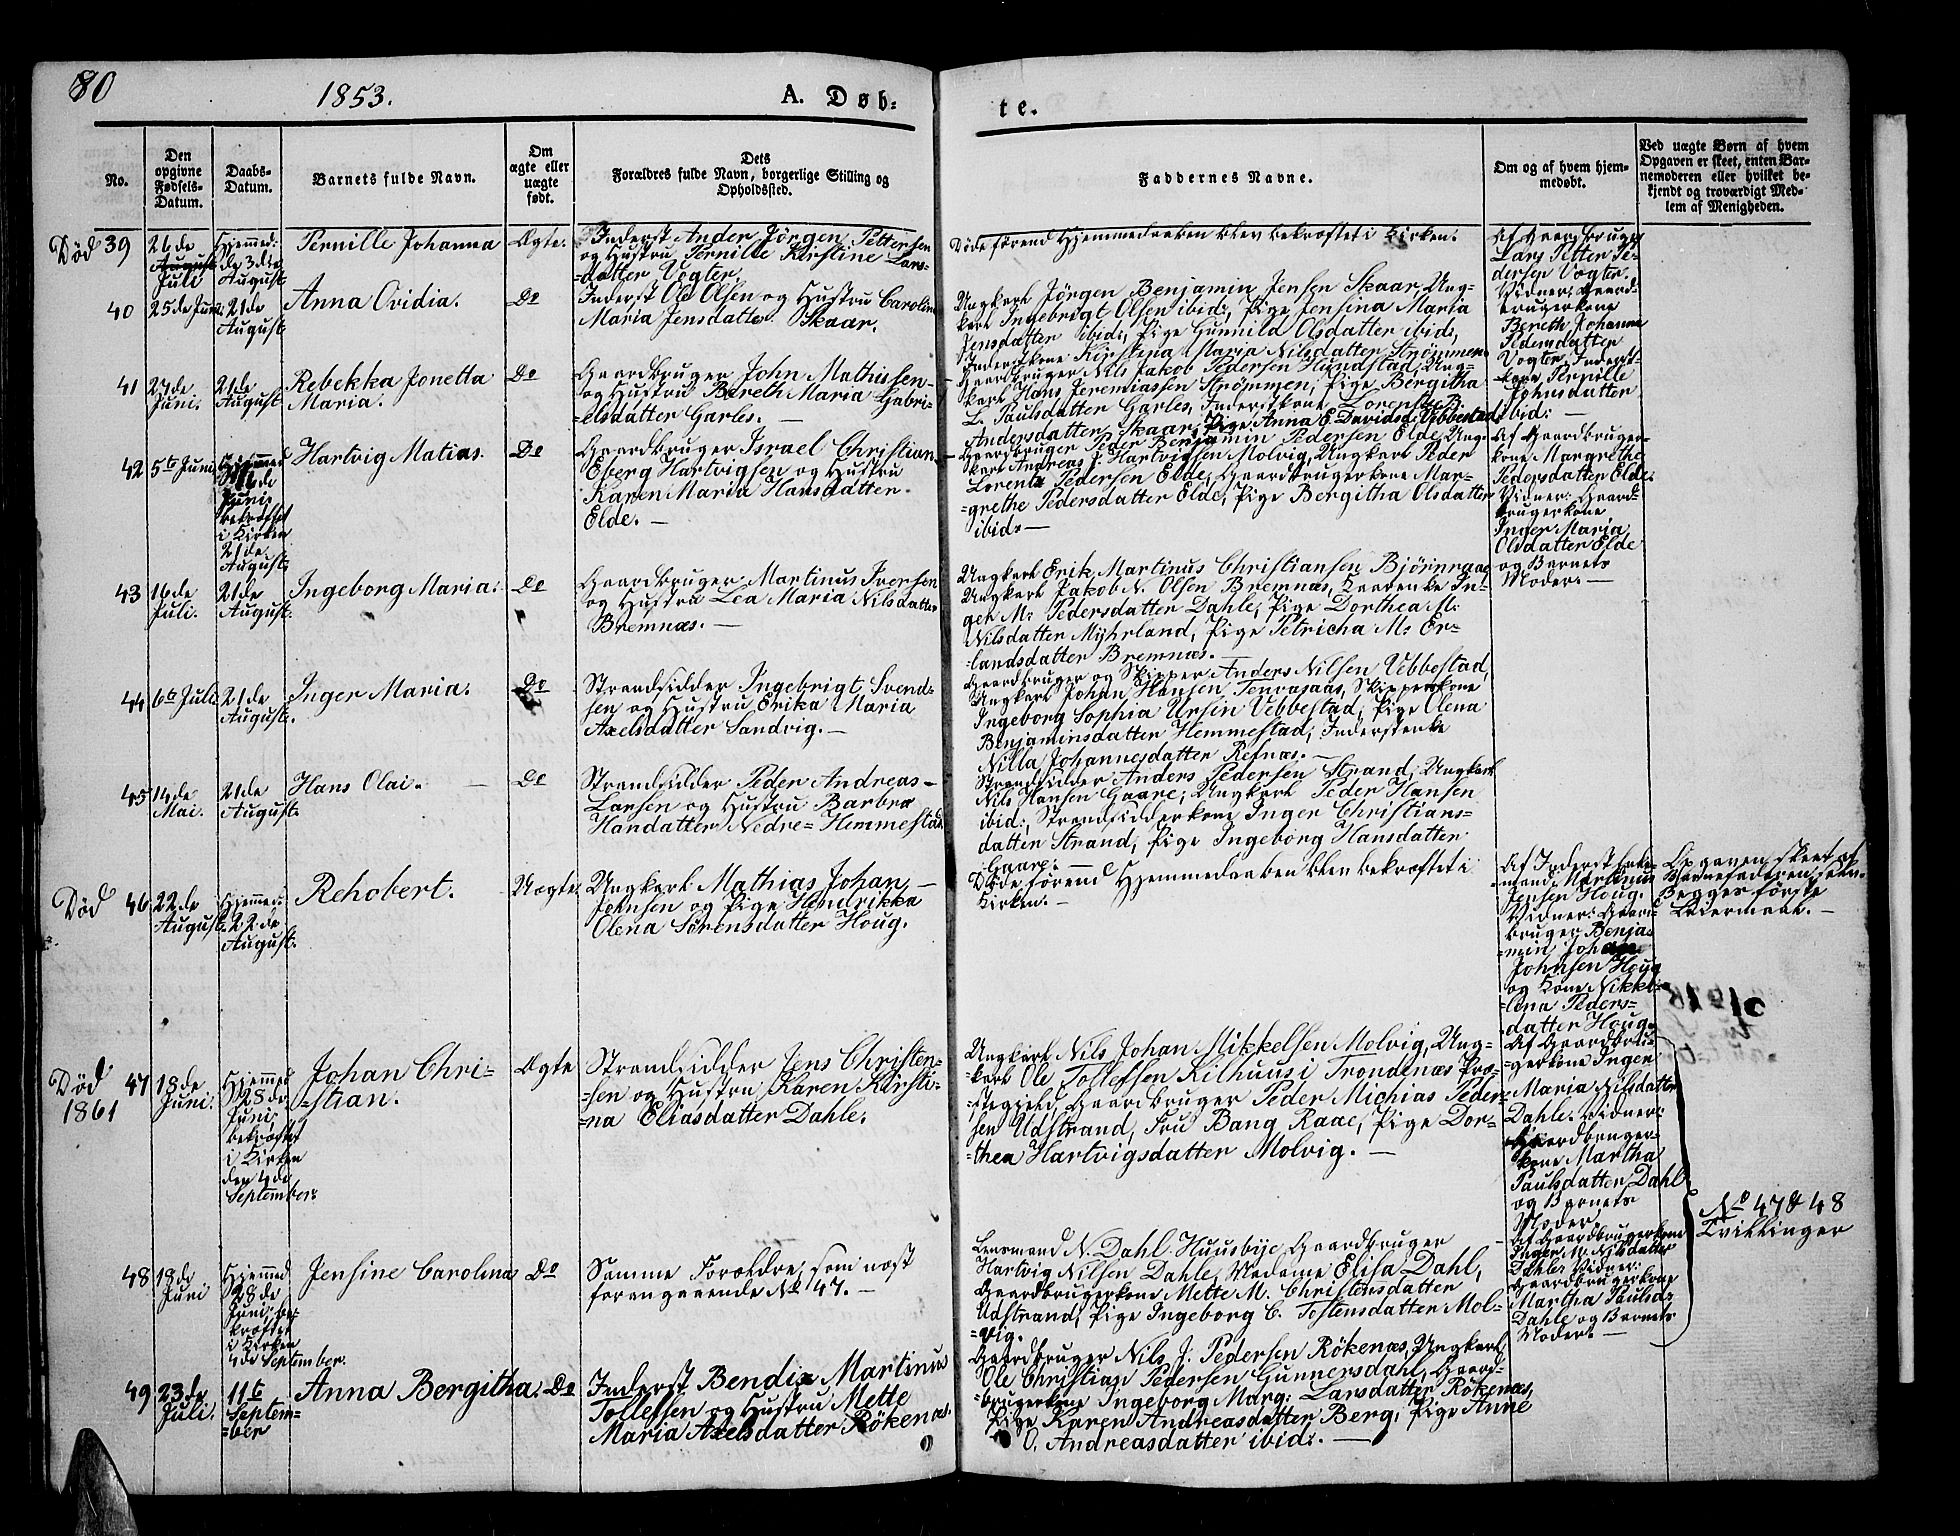 80
1853.
A. Døb-
te.
No.
Den
opgivne
Fødsels-
Datum.
Daabs-
Datum.
Barnets fulde Navn.
Om
ægte eller
uægte
født.
Dets
Forældres fulde Navn, borgerlige Stilling og
Opholdssted.
Faddernes Navne.
Om og af hvem hjem-
medøbt.
Ved uægte Børn af hvem
Opgaven er skeet, enten Bar-
nemoderen eller hvilket be-
kjendt og troværdigt Med-
lem af Menigheden.
Død 39
26de
August
Juli
Hjemmed:
d. 3die
August
Pernille Johanna
Ægte.
Inderst Ander Jörgen Pettersen
og Hustru Pernille Kirstine Lars-
=datter Vogter
Döde förend Hjemmedaaben blev bekræftet i Kirken.
Af Gaardbruger
Lars Petter Pe-
dersen Vogter.
Vidner: Gaard-
brugerkone
Bereth Johanna
Pedersdatter
Vogter, Inderst-
kone Pernille
Johnsdatter
ibid: —
40
25de Juni
21de
August
Anna Ovidia.
Do
Inderst Ole Olsen og Hustru Caroline
Maria Jensdatter Skaar.
Ungkarl Jörgen Benjamin Jensen Skaar, Ung-
karl Ingebrigt Olsen ibid:, Pige Jensina Maria
Jensdatter ibid:, Pige Gunnild Olsdatter ibid:,
Inderstkone Kirstena Maria Nilsdatter Strömmen
41
27de
Juni.
21de
August
Rebekka Jonetta
Maria.
Do
Gaardbruger John Mathissen
og Hustru Bereth Maria Gabri-
=elsdatter Garles. —
Gaardbruger Nils Jakob Pedersen Hundstad, Ung-
karl Hans Jeremiassen Strømmen, Pige Bergitha
L. Paulsdatter Garles, Inderstkone Lorentze B.
Andersdatter Skaar, Pige Anna E. Davidsd. Vebbestad
42
5te Juni
Hjemmed
Juni
bekræftet
i Kirken
21de
August.
Hartvig Matias.
Do
Gaardbruger Israel Christian
Esberg Hartvigsen og Hustru
Karen Maria Hansdatter
Elde. —
Gaardbruger Peder Benjamin Pedersen Elde, Ung-
karl Andreas J. Hartvigsen Molvig, Ungkarl Peder
Lorentz Pedersen Elde, Gaardbrugerkone Mar-
=grethe Pedersdatter Elde, Pige Bergitha Olsdatter
ibid: —
Af Gaardbruger-
kone Margrethe
Pedersdatter Elde.
Vidner: Gaard-
brugerkone
Inger Maria
Olsdatter Elde
og Barnets
Moder. —
43
16de
Juli.
21de
August.
Ingeborg Maria.
Do
Gaardbruger Martinus Iversen
og Hustru Lea Maria Nilsdatter
Bremnæs. —
Ungkarl Erik Martinus Christiansen Bjørnraae
Ungkarl Jakob N. Olsen Bremnæs, Kaarenke In-
ger M: Pedersdatter Dahle, Pige Dorthea M:
Nilsdatter Myhrland, Pige Petricha M: Er-
=landsdatter Bremnæs. —
44
6te Juli.
21de
August.
Inger Maria.
Do
Strandsidder Ingebrigt Svend-
sen og Hustru Erika Maria
Axelsdatter Sandvig. —
Gaardbruger og Skipper Anders Nilsen Vebbestad,
Ungkarl Johan Hansen Tenvasaas, Skipperkone
Ingeborg Sophia Ursin Vebbestad, Pige Olena
Benjaminsdatter Hemmestad, Inderstenke
Nilla Johannesdatter Refnæs. —
45
14de
Mai.
21de
August.
Hans Olai. —
Do
Strandsidder Peder Andreas
Larsen og Hustru Barbra
Handatter Nedre=Hemmestad.
Strandsidder Anders Pedersen Strand, Ungkarl
Nils Hansen Gaare; Ungkarl Peder Hansen
ibid:, Strandsidderkone Inger Christians=
datter Strand, Pige Ingeborg Hansdatter
Gaare. —
Død
46
22de
August.
Hjemmed:
22de
August.
Rehobert.
Uægte.
Ungkarl Mathias Johan
Johnsen og Pige Hendrikka
Olena Sørensdatter Houg.
Döde förend Hjemmedaaben blev bekræftet i
Kirken. —
Af Inderst Enke-
=mand Martinus
Jensen Houg.
Vidner: Gaard-
bruger Benja-
=min Johan
Johnsen Houg
og Kone Nikko-
=lina Peders-
datter Houg.
Opgaven skeet af
Barnefaderen, som
Begges første
Leiermaal. —
Død
1861
47
18de
Juni.
Hjemmed
28de
Juni,
bekræftet
i Kirken
den 4de
September.
Johan Chri-
=stian.
Ægte
Strandsidder Jens Christen-
=sen og Hustru Karen Kirsti-
=na Eliasdatter Dahle.
Ungkarl Nils Johan Mikkelsen Molvig, Ung-
karl Ole Tollefsen Kilhuus i Trondenæs Præ-
=stegjeld, Gaardbruger Peder Michias Peder-
sen Udstrand, Fru Bang Raae, Pige Dor-
=thea Hartvigsdatter Molvig. —
Af Gaardbru-
=gerkone Inger
Maria Nilsdatter
Dahle. Vidner:
Gaardbruger-
kone Martha
Paulsdatter Dahl
og Barnets
Moder.
No 47 & 48
Tvillinger
48
18de
Juni
Hjemmed
28de
Juni, be-
kræftet
i Kirken
4de September.
Jensine Carolina
Do
Samme Forældre, som næst
forangaaende No 47. —
Lensmand N. Dahl Huusbye, Gaardbruger
Hartvig Nilsen Dahle, Madame Elisa Dahl,
Gaardbrugerkone Mette M. Christensdatter
Udstrand, Pige Ingeborg C. Tostensdatter Mol-
=vig.
Af Gaardbrugerkone
Inger M. Nilsdatter
Dahle. Vidner:
Gaardbrugerkone
Martha Paulsd.
Dahle og Barnets
Moder. —
49
23de
Juli
11te
Septem-
=ber
Anna Bergitha.
Do
Inderst Bendix Martinus
Tollefsen og Hustru Mette
Maria Axelsdatter Rökenæs.
Gaardbruger Nils J. Pedersen Rökenæs, Ungkarl
Ole Christian Pedersen Gunnersdahl, Gaard-
=brugerkone Ingeborg Marg: Larsdatter Rökenæs,
Pige Karen Andreasdatter Berg, Pige Anne
O. Andreasdatter ibid:. —